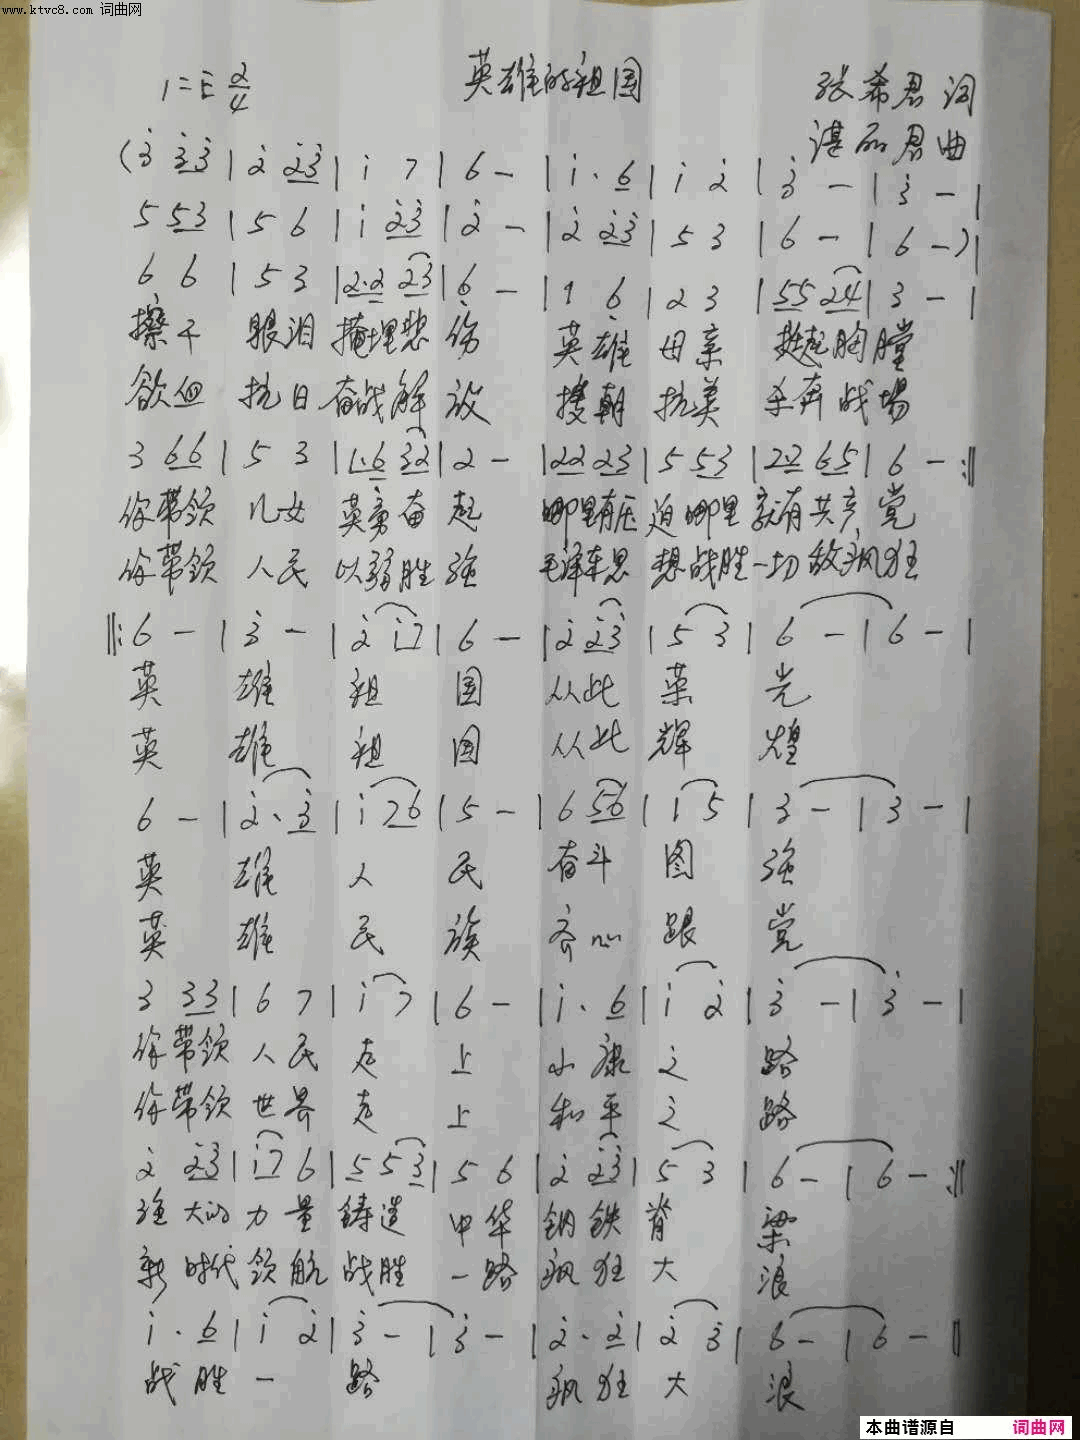 www.ktvc8.com 词曲网
1=E 2/4 英雄的祖国 张希君 词
谌丽君 曲
(3̇ 3̇3̇ | 2̇ 2̇3̇ | i 7 | 6 - | i· 6 | i 2̇ | 3̇ - | 3̇ - |
5 53 | 5 6 | i 2̇3̇ | 2̇ - | 2̇ 2̇3̇ | 5 3 | 6 - | 6 -) |
6 6 | 5 3 | 2·2 23 | 6 - | 1 6 | 2 3 | 55 24 | 3 - |
擦干 眼泪 掩埋悲 伤 英雄 母亲 挺起胸膛
欲血 抗日 奋战解 放 援朝 抗美 杀奔战場
3 66 | 5 3 | 1·6 32 | 2 - | 22 23 | 5 53 | 22 65 | 6 - :||
你带领 儿女 英勇奋 起 哪里有压 迫哪里 就有共产 党
你带领 人民 以弱胜 强 毛泽东思 想战胜 一切敌疯狂
||: 6 - | 3̇ - | 2̇ i7 | 6 - | 2̇ 2̇3̇ | 5 3 | 6 - | 6 - |
英 雄 祖 国 从此 荣 光
英 雄 祖 国 从此 辉 煌
6 - | 2̇· 3̇ | i 76 | 5 - | 6 56 | i 5 | 3 - | 3 - |
英 雄 人 民 奋斗 图 强
英 雄 民 族 齐心 跟 党
3 33 | 6 7 | i 7 | 6 - | i· 6 | i 2̇ | 3̇ - | 3̇ - |
你带领 人民 走 上 小康 之 路
你带领 世界 走 上 和平 之 路
2̇ 2̇3̇ | i7 6 | 5 53 | 5 6 | 2̇ 2̇3̇ | 5 3 | 6 - | 6 - :||
强 大的 力量 铸造 中华 钢铁 脊 梁
新 时代 领航 战胜 一路 疯狂 大 浪
i· 6 | i 2̇ | 3̇ - | 3̇ - | 2̇· 2̇ | 2̇ 3̇ | 6 - | 6 - ||
战胜 一 路 疯狂 大 浪
本曲谱源自 词曲网